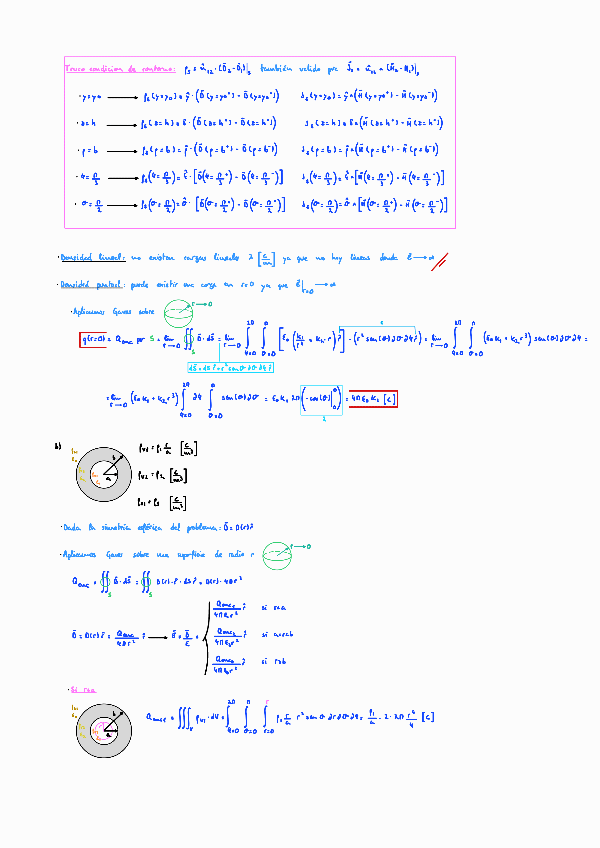 Truco condicion de contorno: ρs = n̂12 · (D̄2 - D̄1)|s también valido para J̄s = n̂12 ∧ (H̄2 - H̄1)|s
· y=y0 → ρs(y=y0) = ŷ · (D̄(y=y0⁺) - D̄(y=y0⁻)) Js(y=y0) = ŷ ∧ (H̄(y=y0⁺) - H̄(y=y0⁻))
· z=h → ρs(z=h) = ẑ · (D̄(z=h⁺) - D̄(z=h⁻)) Js(z=h) = ẑ ∧ (H̄(z=h⁺) - H̄(z=h⁻))
· ρ=b → ρs(ρ=b) = ρ̂ · (D̄(ρ=b⁺) - D̄(ρ=b⁻)) Js(ρ=b) = ρ̂ ∧ (H̄(ρ=b⁺) - H̄(ρ=b⁻))
· φ=π/3 → ρs(φ=π/3) = φ̂ · [D̄(φ=π/3⁺) - D̄(φ=π/3⁻)] Js(φ=π/3) = φ̂ ∧ [H̄(φ=π/3⁺) - H̄(φ=π/3⁻)]
· θ=π/2 → ρs(θ=π/2) = θ̂ · [D̄(θ=π/2⁺) - D̄(θ=π/2⁻)] Js(θ=π/2) = θ̂ ∧ [H̄(θ=π/2⁺) - H̄(θ=π/2⁻)]
· Densidad lineal: no existen cargas lineales λ [C/m] ya que no hay lineas donde Ē → ∞
· Densidad puntual: puede existir una carga en r=0 ya que Ē|r=0 → ∞
· Aplicamos Gauss sobre r → 0
q(r=0) = Qenc por S = lim r→0 ∯S D̄·dS̄ = lim r→0 ∫φ=0^2π ∫θ=0^π [ε0 (k1/r² + k2·r) r̂] · (r² sen(θ) dθ dφ r̂) = lim r→0 ∫φ=0^2π ∫θ=0^π (ε0k1 + k2r³) sen(θ) dθ dφ =
dS̄ = dS r̂ = r² senθ dθ dφ r̂
= lim r→0 (ε0 k1 + k2 r³) ∫φ=0^2π dφ ∫θ=0^π sen(θ) dθ = ε0 k1 2π (-cos(θ)|0^π) = 4π ε0 k1 [C]
2
b)
b
a
ρv1 = ρ1 r/a [C/m³]
ρv2 = ρ2 [C/m³]
ρv3 = ρ3 [C/m³]
· Dada la simetria esférica del problema: D̄ = D(r) r̂
· Aplicamos Gauss sobre una superficie de radio r r → 0
Qenc = ∯S D̄·dS̄ = ∯S D(r)·r̂ · dS r̂ = D(r)·4πr²
D̄ = D(r) r̂ = Qenc/4πr² r̂ → Ē = D̄/ε =
Qenc1/4πε1r² r̂ si r<a
Qenc2/4πε2r² r̂ si a<r<b
Qenc3/4πε3r² r̂ si r>b
· Si r<a
b
a
Qenc1 = ∭V ρv1·dV = ∫φ=0^2π ∫θ=0^π ∫r=0^r ρ1 r/a r² senθ dr dθ dφ = ρ1/a · 2 · 2π r⁴/4 [C]